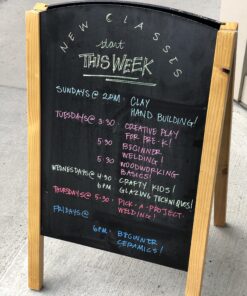 NEW CLASSES
start
THIS WEEK
SUNDAYS@ 2PM: CLAY
HAND BUILDING!
TUESDAYS@ 3:30: CREATIVE PLAY
FOR PRE-K!
5:30 BEGINNER
WELDING!
5:30 WOODWORKING
BASICS!
WEDNESDAYS@ 4:30 CRAFTY KIDS!
6PM: GLAZING TECHNIQUES!
THURSDAYS@ 5:30: PICK-A-PROJECT
WELDING!
FRIDAYS@
6PM: BEGINNER
CERAMICS!